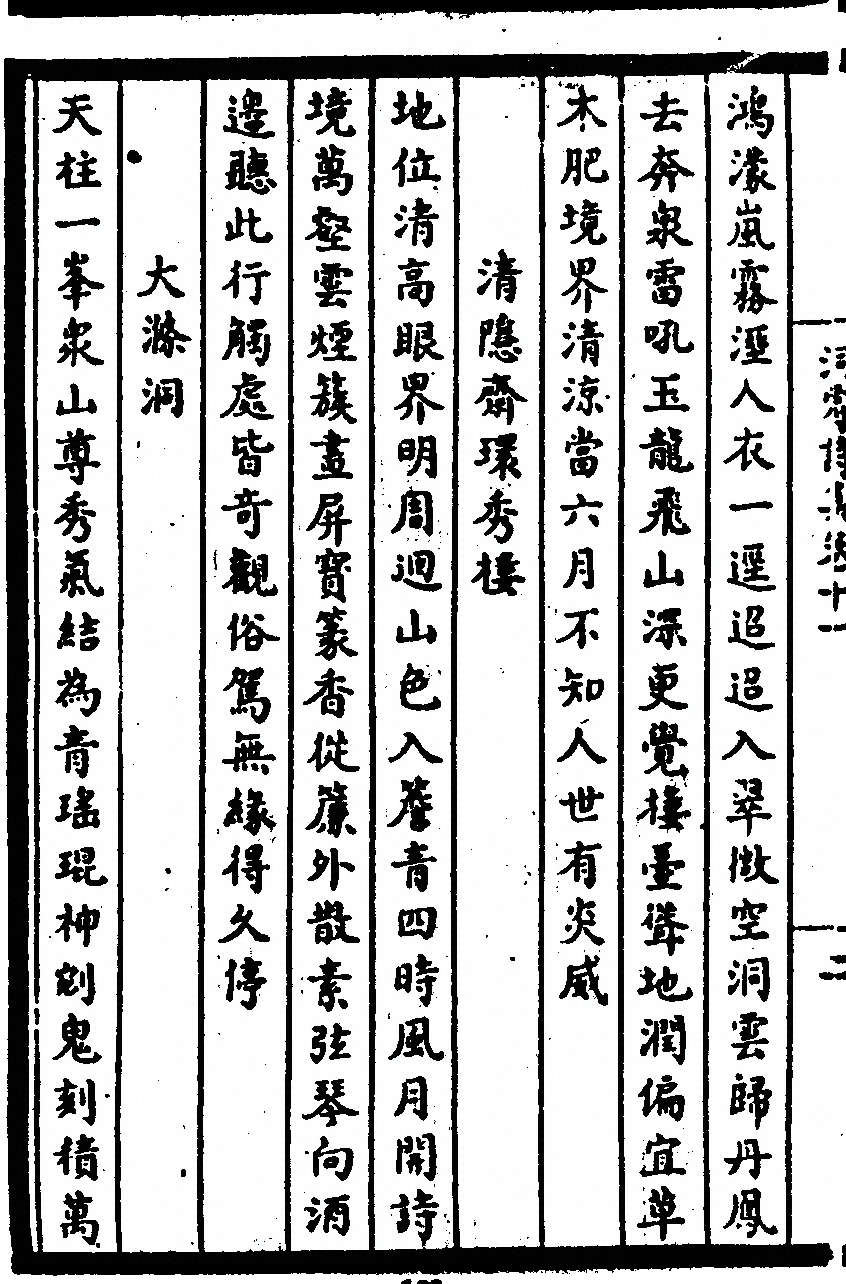 鴻濛嵐霧溼人衣一逕迢迢入翠微空洞雲歸丹鳳
去奔泉雷吼玉龍飛山深更覺樓臺聳地潤偏宜草
木肥境界清涼當六月不知人世有炎威
清隱齋環秀樓
地位清高眼界明周迴山色入簷青四時風月開詩
境萬壑雲煙簇畫屏寶篆香從簾外散素弦琴向酒
邊聽此行觸處皆奇觀俗駕無緣得久停
大滌洞
天柱一峯泉山尊秀氣結為青瑤琨神剜鬼刻積萬
二